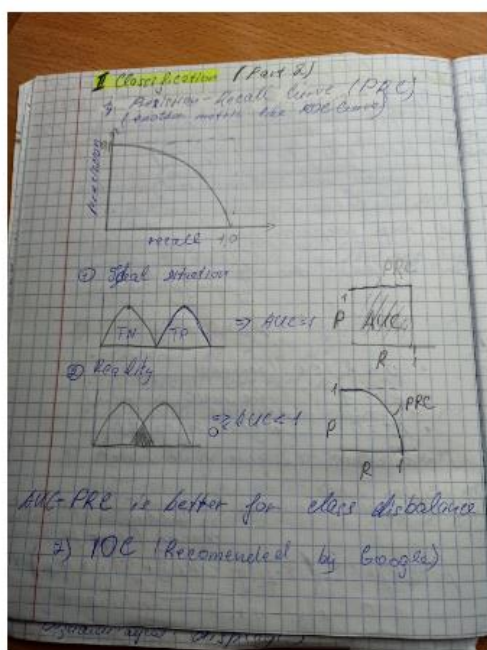 I Classification (Part 2)
1) Precision-Recall Curve (PRC)
(another metric like ROC Curve)
Precision
recall 1,0
① Ideal situation
PRC
TN TP => AUC=1
1
P AUC
R 1
② Reality
0<AUC<1
1
P PRC
R 1
AUC-PRC is better for class disbalance
2) IOC (Recomended by Google)